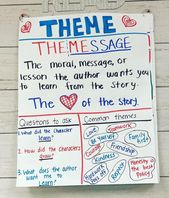 READ
THEME
THE MESSAGE
The moral, message, or
lesson the author wants you
to learn from the story.
The ❤ of the story.
Questions to ask
1. What did the character
learn?
2. How did the characters
grow?
3. What does the author
want me to
learn?
Common themes
Love
Teamwork
Be
yourself
Family
Friendship
Courage
Kindness
Hard work
pays off
Respect
Honesty is
the best
policy